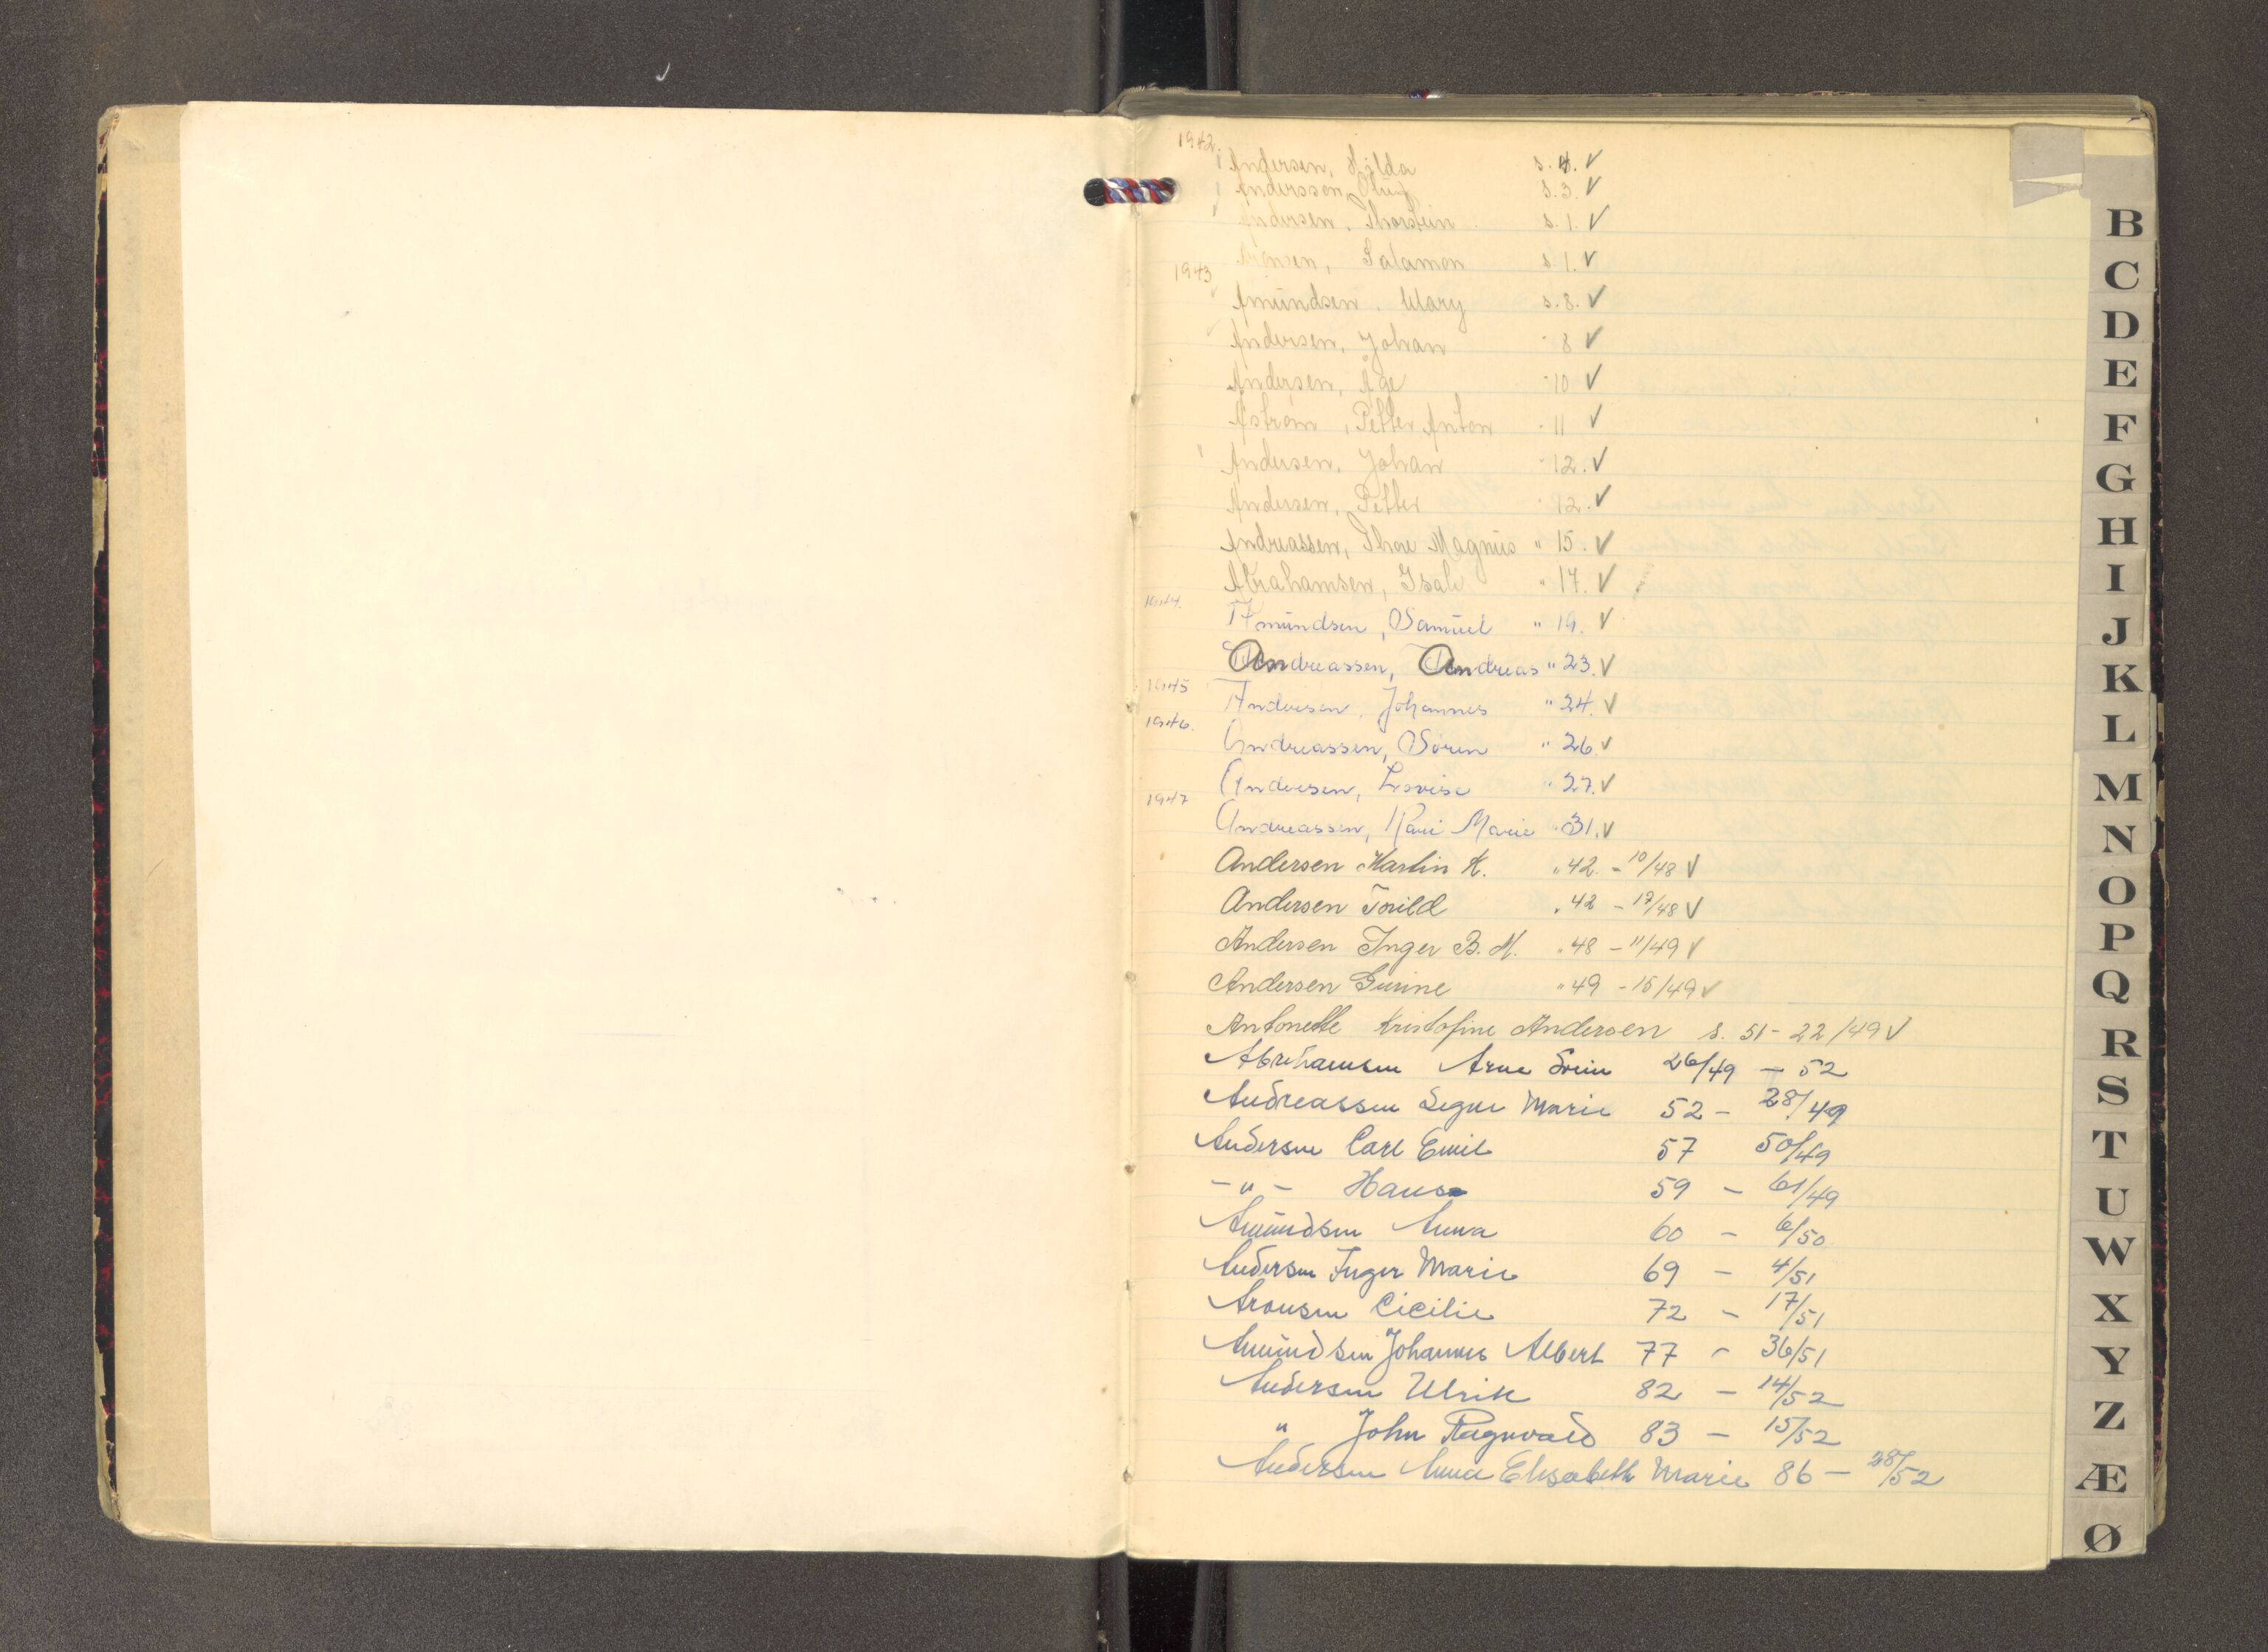 1942.
Andersen, Hilda s. 4. ✓
Anderssen, s. 3. ✓
Andersen, Thorstein s. 1. ✓
Aronsen, Salamon s. 1. ✓
1943
Amundsen. Mary s. 8. ✓
Andersen, Johan " 8 ✓
Andersen, Åge " 10 ✓
Åstrøm, Petter Anton " 11 ✓
Andersen, Johan " 12. ✓
Andersen, Petter " 12. ✓
Andreassen, Thore Magnus " 15. ✓
Abrahamsen, Isak " 17. ✓
1944.
Amundsen, Samuel " 19. ✓
Andreassen, Andreas " 23. ✓
1945
Andersen, Johannes " 24. ✓
1946.
Andreassen, Søren " 26. ✓
Andersen, Lovise " 27. ✓
1947
Andreassen, Kari Marie " 31. ✓
Andersen Martin K. " 42. - 10/48 ✓
Andersen Torild " 42 - 17/48 ✓
Andersen Inger B. M. " 48 - 11/49 ✓
Andersen Gurine " 49 - 15/49 ✓
Antonette Kristofine Andersen s. 51 - 22/49 ✓
Abrahamsen Arne Svein 26/49 - 52
Andreassen Signe Marie 52 - 28/49
Andersen Carl Emil 57 50/49
- " - Hans 59 - 61/49
Amundsen Anna 60 - 6/50
Andersen Inger Marie 69 - 4/51
Aronsen Cicilie 72 - 17/51
Amundsen Johannes Albert 77 - 36/51
Andersen Ulrik 82 - 14/52
" John Ragnvald 83 - 15/52
Andersen Anna Elisabeth Marie 86 - 28/52
B
C
D
E
F
G
H
I
J
K
L
M
N
O
P
Q
R
S
T
U
W
X
Y
Z
Æ
Ø